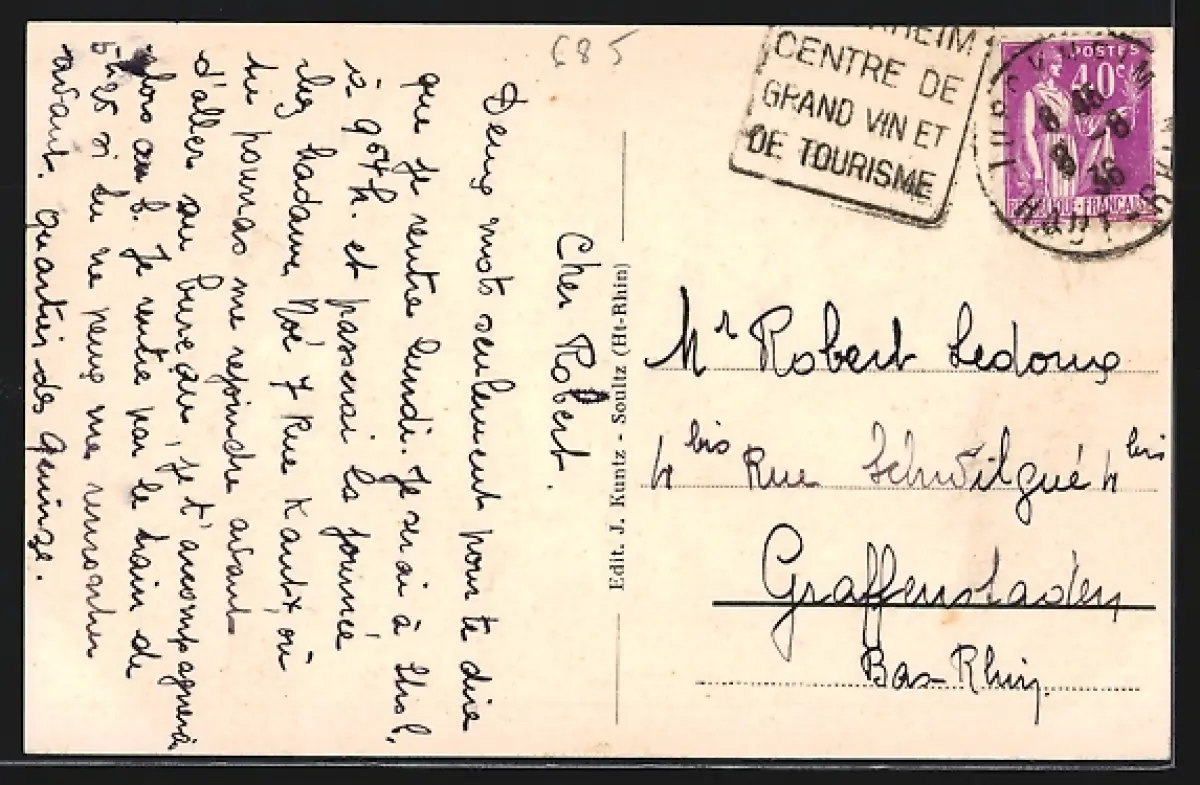 685
Cher Robert.
Deux mots seulement pour te dire
que je rentre lundi. Je serai à
à 9 h. et passerai la journée
chez Madame Noé 7 Rue Kautz, où
tu pourras me rejoindre avant
d'aller au bureau, je t'accompagnerai
alors au b. Je rentre par le train de
5h25 si tu ne peux me rencontrer
avant. quartier des
Edit. J. Kuntz - Soultz (Ht-Rhin)
CENTRE DE
GRAND VIN ET
DE TOURISME
POSTES
40c
8-8
36
RÉPUBLIQUE-FRANÇAISE
Mr Robert Ledoux
4 bis Rue Schwilgué 4 bis
Graffenstaden
Bas-Rhin